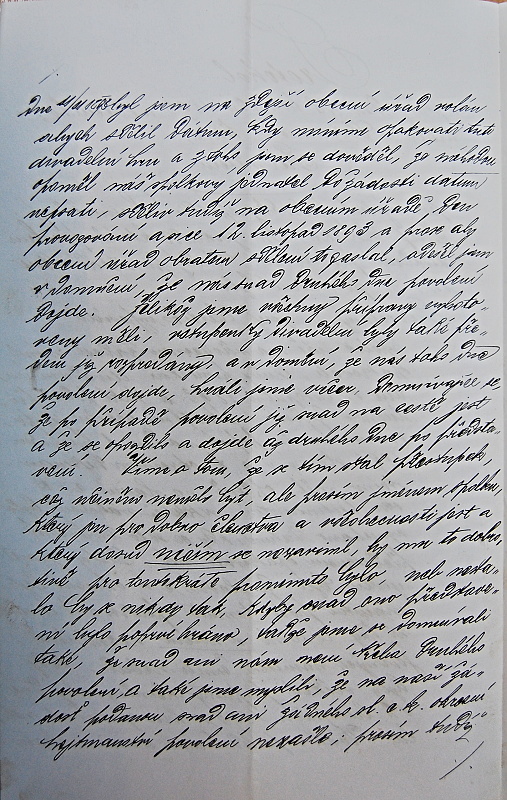 Dne 4/11 1893 byl jsem na zdejší obecní úřad volán
abych sdělil datum, kdy míníme opakovati tuto
divadelní hru a z toho jsem se dověděl, že náhodou
opoměl náš spolkový jednatel do žádosti datum
vepsati, sděliv tudíž na obecním úřadě den
provozování a sice 12. listopad 1893 a prose aby
obecní úřad obratem sdělení to zaslal, odešel jsem
v domnění, že nás snad druhého dne povolení
dojde. Jelikož jsme všechny přípravy vyhoto-
veny měli, vstupenky divadelní byly také pře-
dem již rozprodány, a v domění, že nás toho dne
povolení dojde, hráli jsme večer, domnívajíce se
že po případě povolení již snad na cestě jest
a že se opozdilo a dojde až druhého dne po předsta-
vení. Víme o tom, že se tím stal přestupek
což učiněno nemělo být, ale prosím jménem spolku,
který jen pro dobro členstva a všeobecnosti jest a
který dosud ničím se neprovinil, by mu to dobro-
tivě pro tentokráte prominuto bylo, neb nesta-
lo by se nikdy tak, kdyby snad ono představe-
ní bylo poprvé hráno, takže jsme se domnívali
také, že snad ani nám není třeba druhého
povolení, a také jsme myslili, že na naši žá-
dost podanou snad ani žádného sl. c. k. okresní
hejtmanství povolení nezašle; prosím tudíž